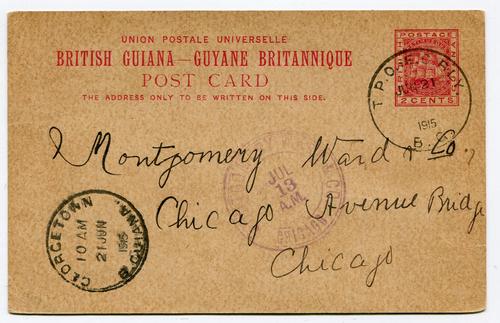 UNION POSTALE UNIVERSELLE
BRITISH GUIANA—GUYANE BRITANNIQUE
POST CARD
THE ADDRESS ONLY TO BE WRITTEN ON THIS SIDE.
POSTAGE
2 CENTS
T.P.O.
1915
Montgomery Ward & Co.,
Chicago Avenue Bridge
Chicago
JUL
13
A.M.
CHICAGO
GEORGETOWN
10 AM
21 JUN
1915
B. GUIANA